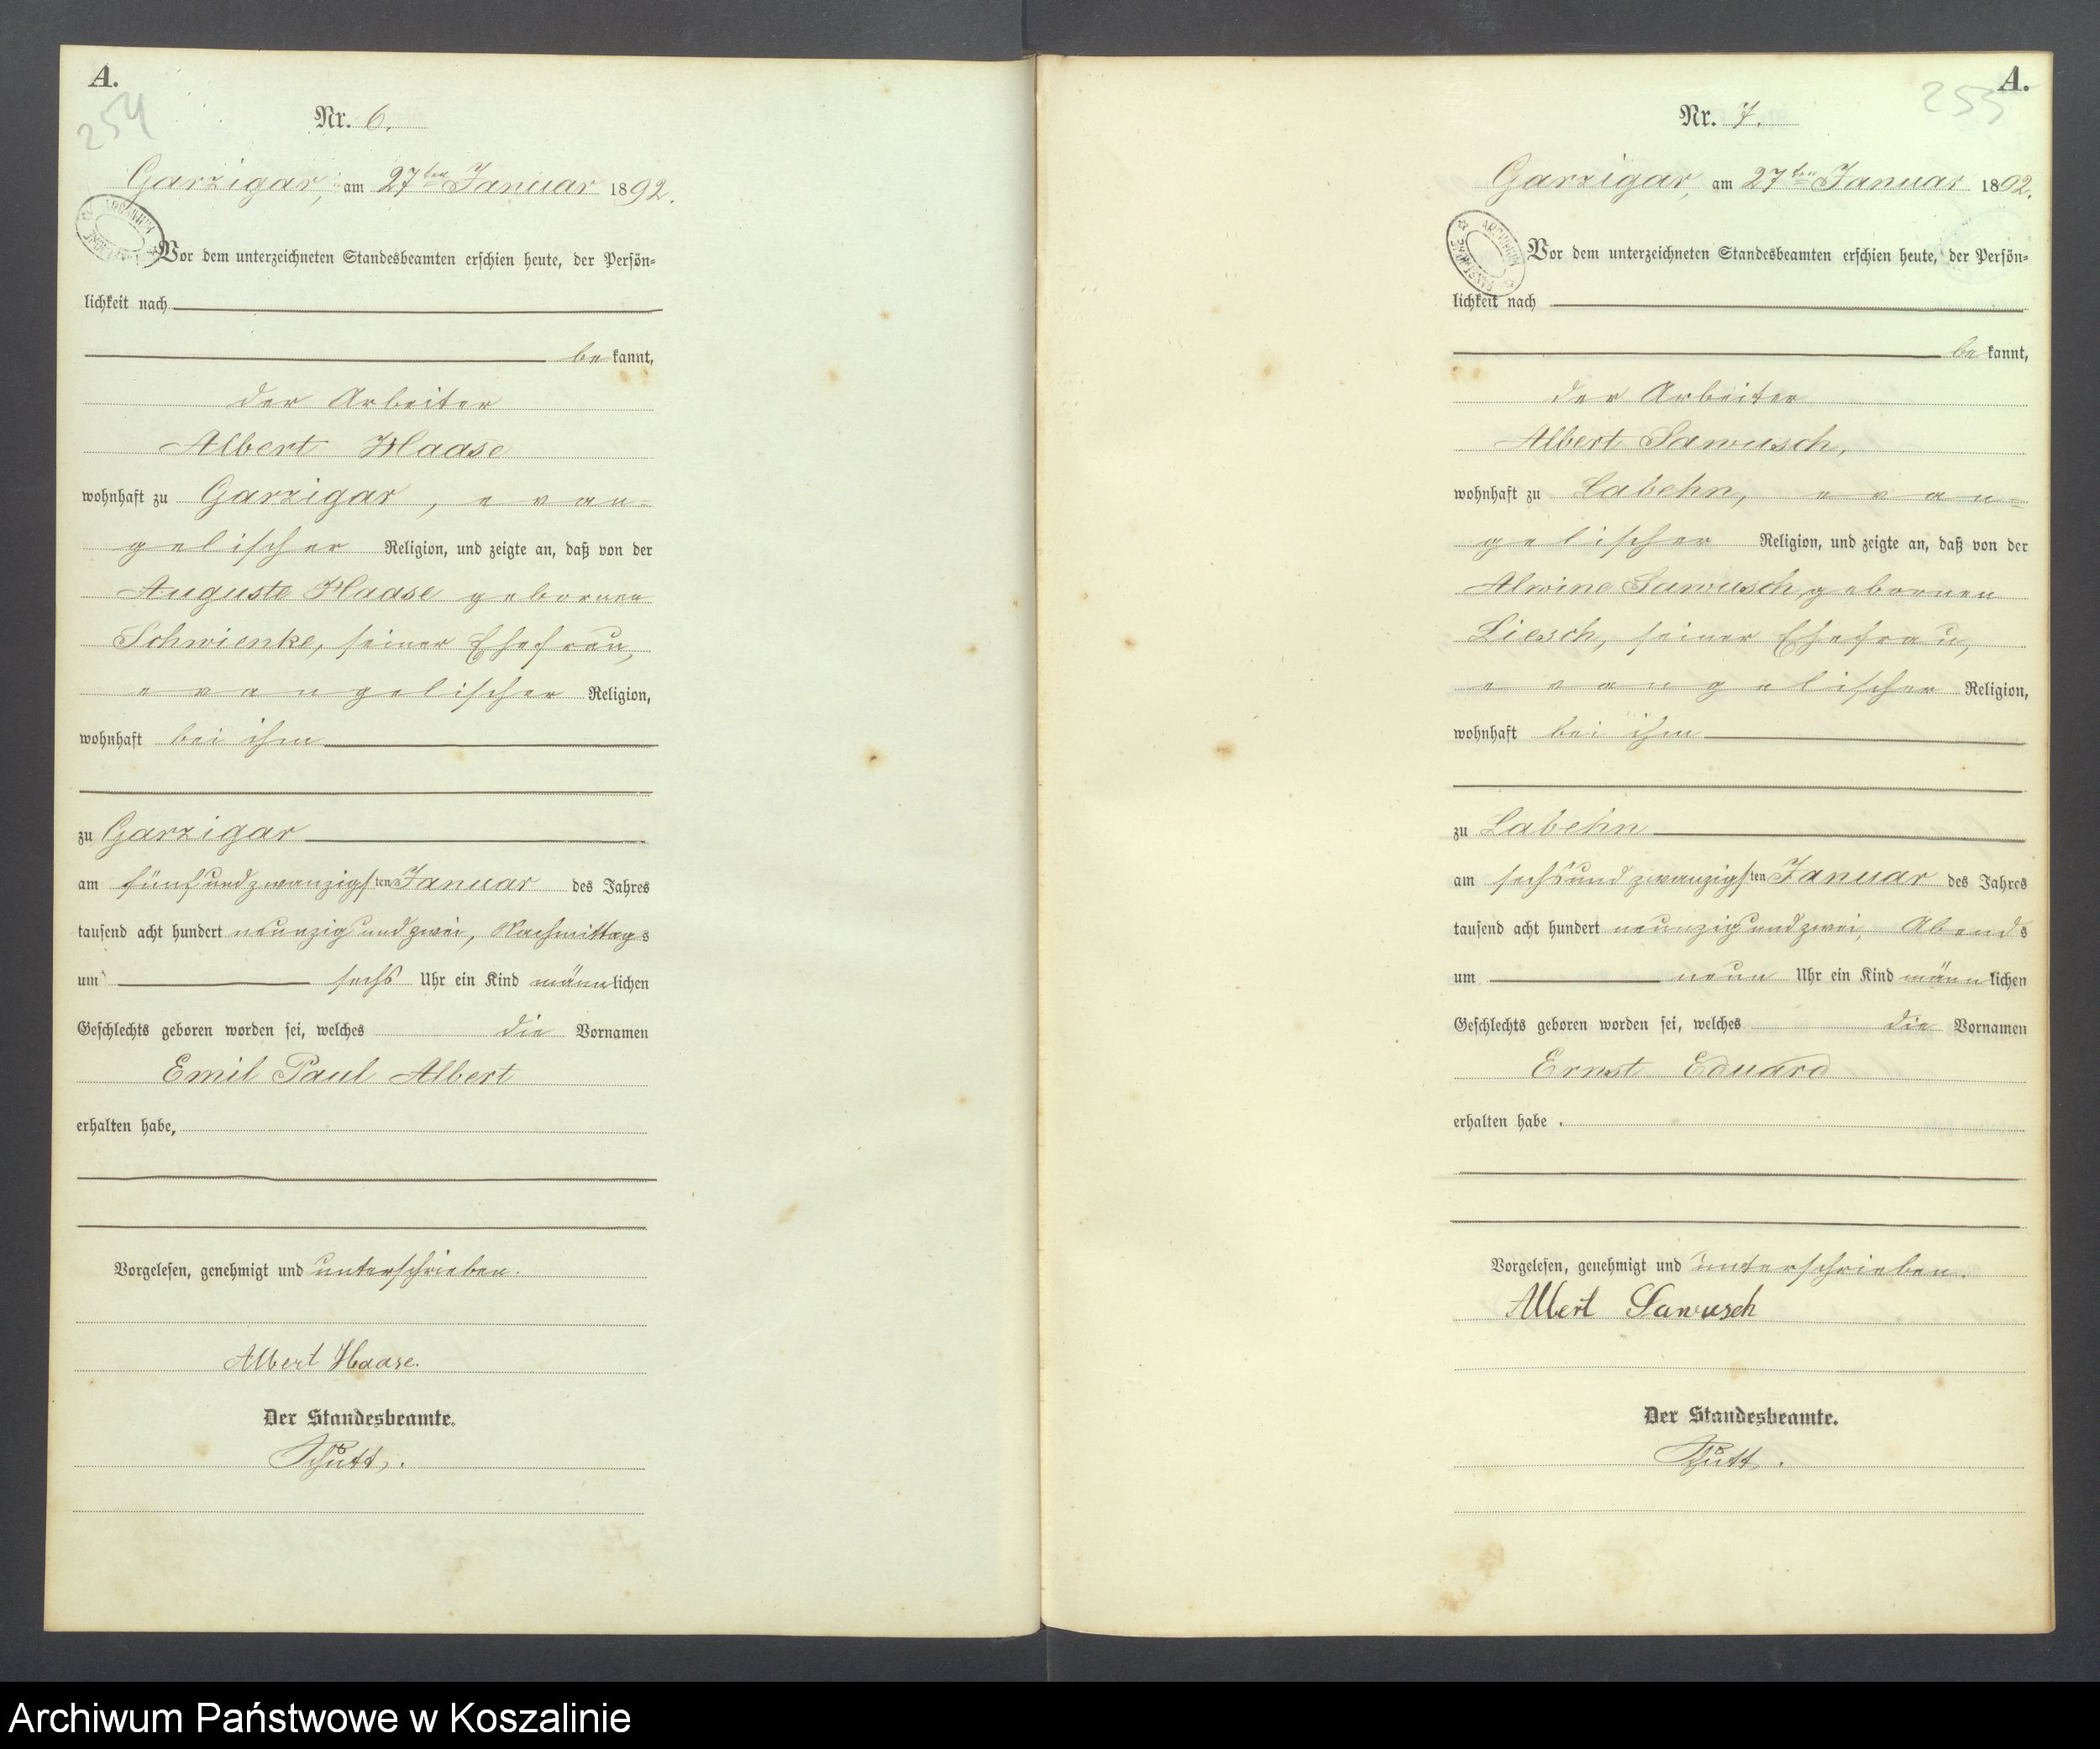 A.
254
Nr. 6.
Garzigar, am 27ten Januar 1892.
Vor dem unterzeichneten Standesbeamten erschien heute, der Persön=
lichkeit nach
be kannt,
der Arbeiter
Albert Haase
wohnhaft zu Garzigar, evan=
gelischer Religion, und zeigte an, daß von der
Auguste Haase gebornen
Schwienke, seiner Ehefrau,
evangelischer Religion,
wohnhaft bei ihm
zu Garzigar
am fünfundzwanzigsten Januar des Jahres
tausend acht hundert neunzig und zwei, Nachmittags
um sechs Uhr ein Kind männlichen
Geschlechts geboren worden sei, welches die Vornamen
Emil Paul Albert
erhalten habe,
Vorgelesen, genehmigt und unterschrieben.
Albert Haase.
Der Standesbeamte.
A.
255
Nr. 7.
Garzigar, am 27ten Januar 1892.
ARCHIWUM
Vor dem unterzeichneten Standesbeamten erschien heute, der Persön=
lichkeit nach
be kannt,
der Arbeiter
Albert Sawusch,
wohnhaft zu Labehn, evan=
gelischer Religion, und zeigte an, daß von der
Alwine Sawusch, gebornen
Liesch, seiner Ehefrau,
evangelischer Religion,
wohnhaft bei ihm
zu Labehn
am sechsundzwanzigsten Januar des Jahres
tausend acht hundert neunzig und zwei, Abends
um neun Uhr ein Kind männlichen
Geschlechts geboren worden sei, welches die Vornamen
Ernst Eduard
erhalten habe.
Vorgelesen, genehmigt und unterschrieben.
Albert Sawusch
Der Standesbeamte.
Archiwum Państwowe w Koszalinie